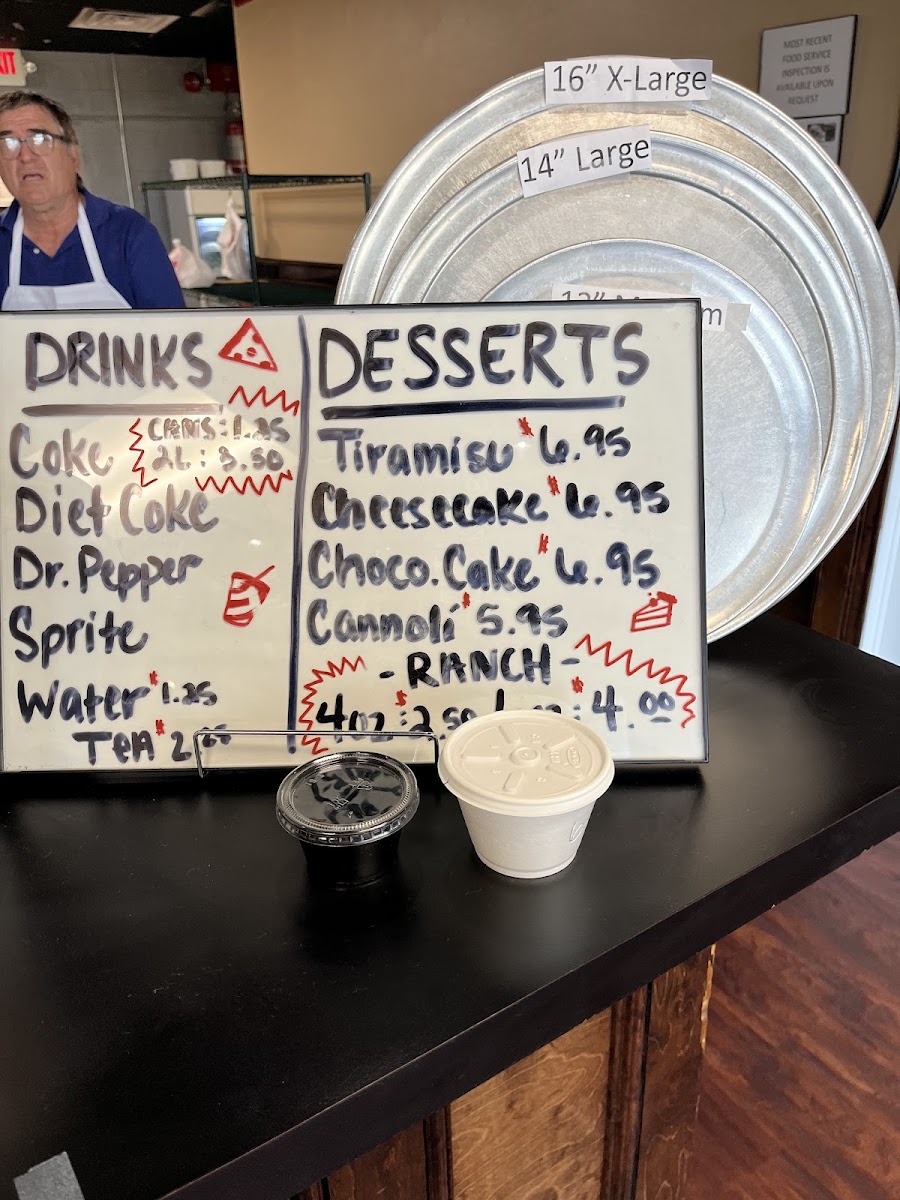 XIT
MOST RECENT
FOOD SERVICE
INSPECTION IS
AVAILABLE UPON
REQUEST
16” X-Large
14” Large
12”
DRINKS
Coke CANS: 1.25
2L: 3.50
Diet Coke
Dr. Pepper
Sprite
Water $1.25
TEA $
DESSERTS
Tiramisu $6.95
Cheesecake $6.95
Choco. Cake $6.95
Cannoli $5.95
- RANCH -
4oz: $2.50 $4.00